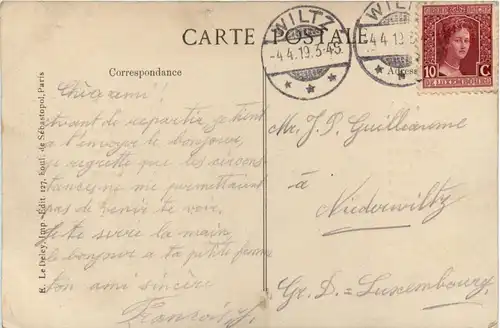 WILTZ
-4.4.19.3-4S
CARTE POSTALE
WILTZ
-4.4.19.3
10 C
G. D. DE LUXEMBOURG
Correspondance
Adresse
Cher ami!
Avant de repartir je tient
a t'envoyer le bonjour,
je regrette que les circons
tances, ne me permettaient
pas de venir te voir.
Je te serre la main,
le bonjour a ta petite femme
Ton ami sincère
François
Mr. J. P. Guillaume
à
Niederwiltz
Gr. D. = Luxembourg
E. Le Deley, Imp.-Edit. 127, Boul. de Sébastopol, Paris